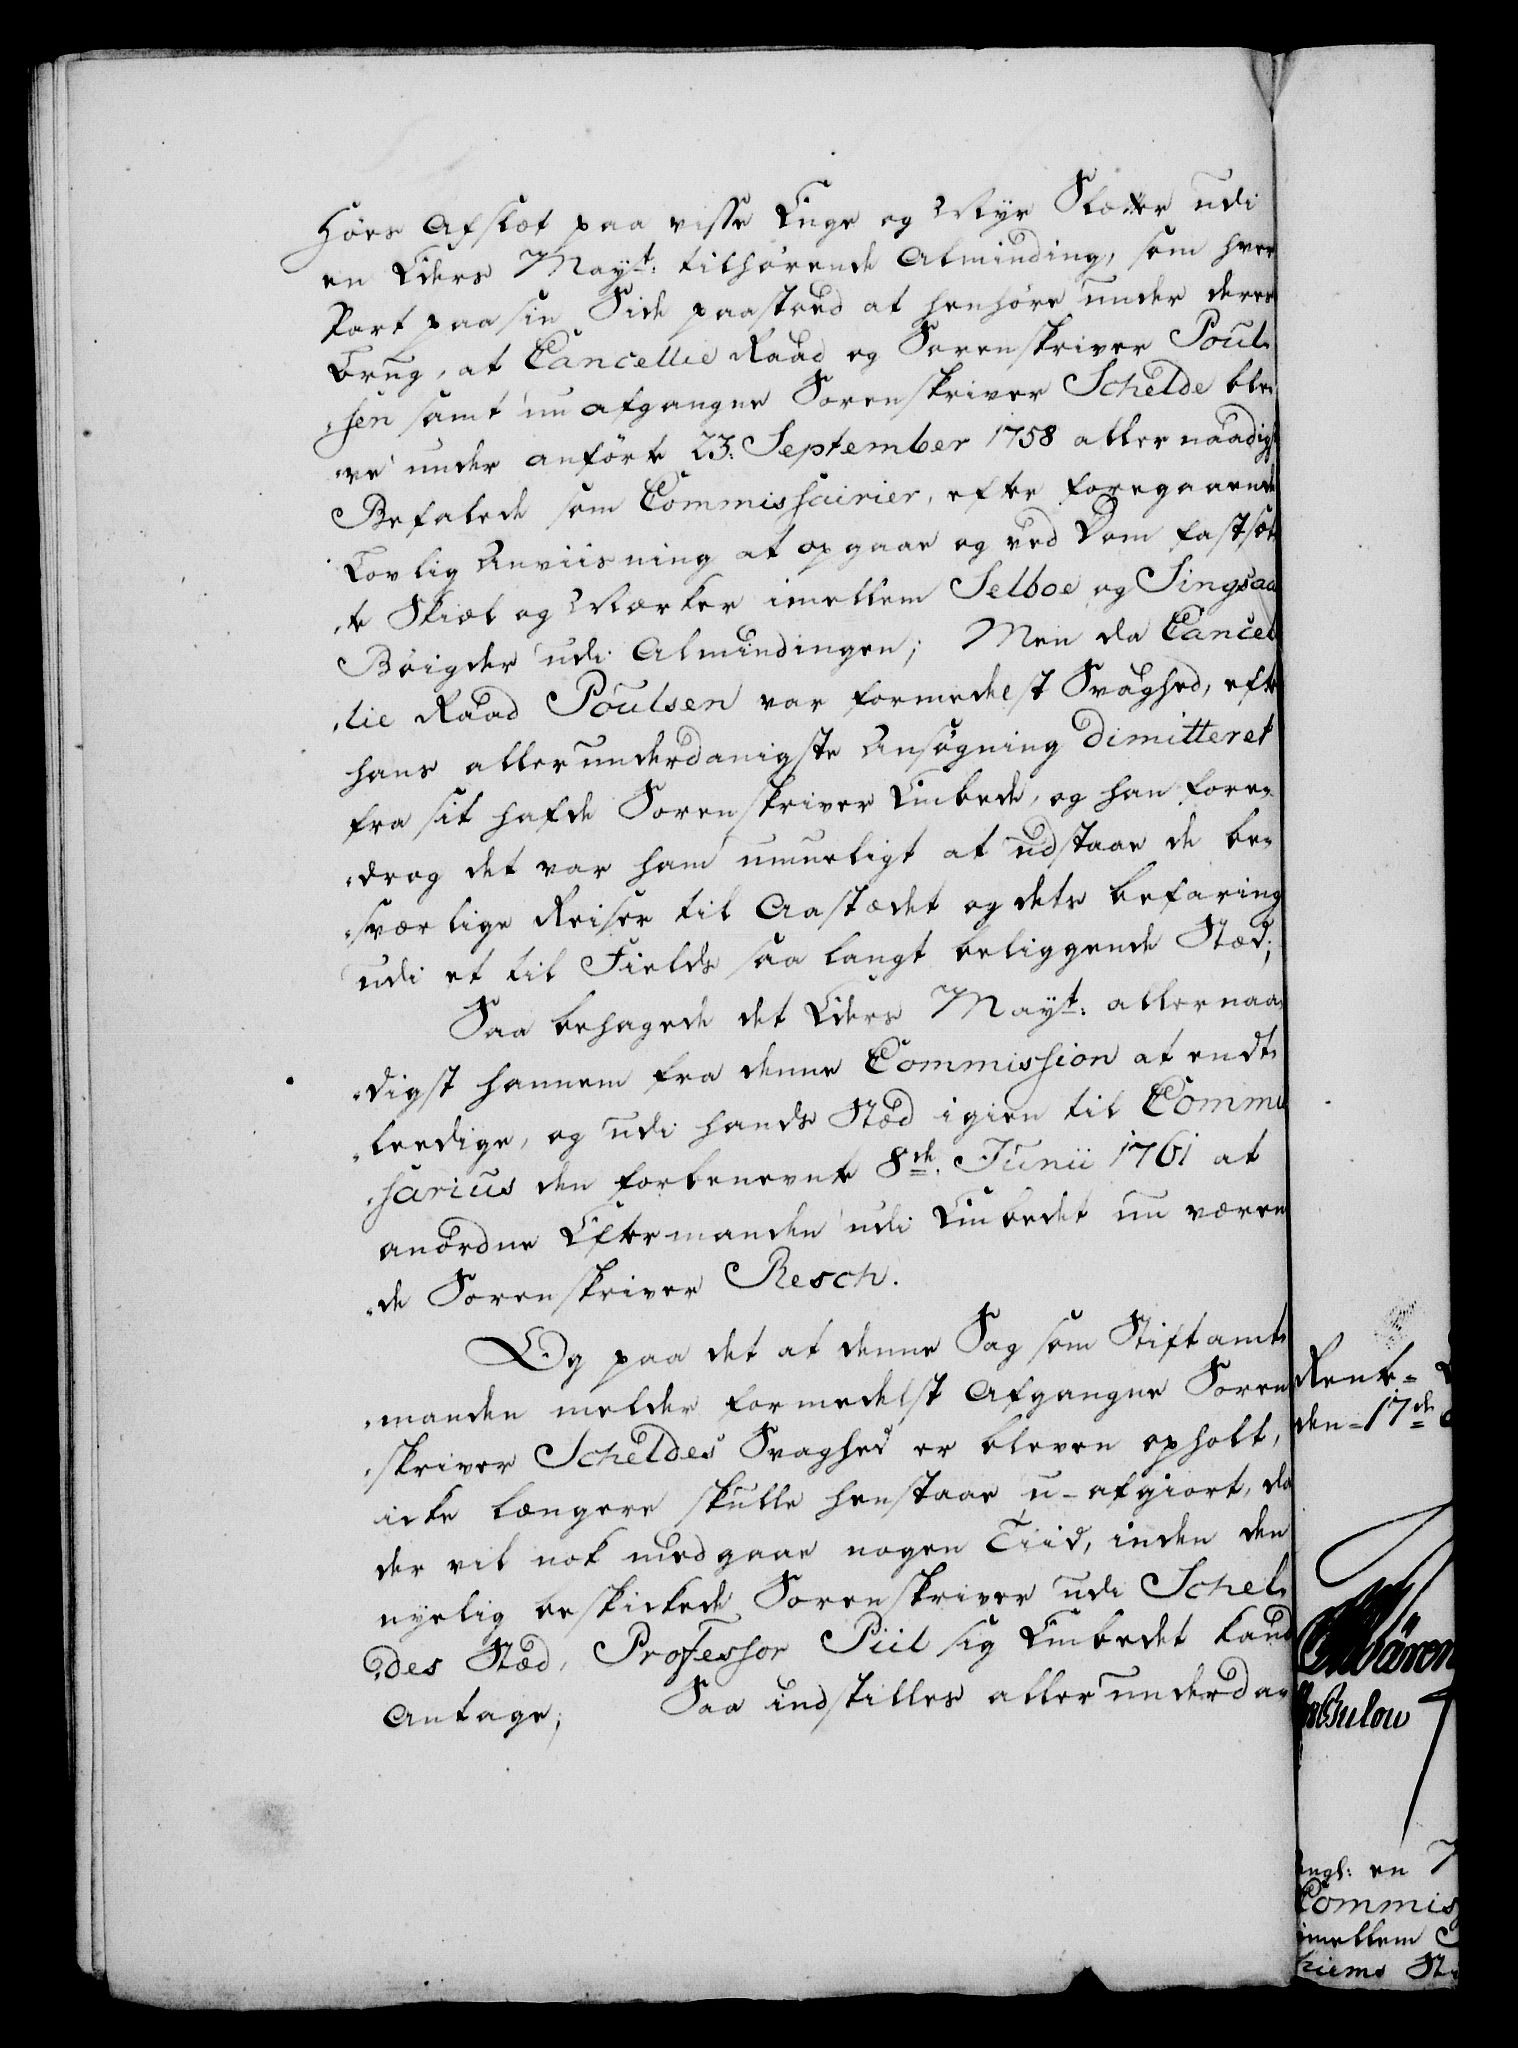 Høes Afslæt paa visse Enge og Myr Slætter udi
en Eders Mayt: tilhørende Alminding, som hver
Part paa sin Side paastoed at henhøre under deres
Brug, at Cancellie Raad og Sorenskriver Poul-
-sen samt nu afgangne Sorenskriver Schelde ble-
-ve under anførte 23: September 1758 allernaadigst
Befalede som Commissairier, efter foregaaende
Lovlig Anviisning at opgaae og ved Dom fastsæt-
-te Skiæl og Mærker imellem Selboe og Singsaas
Bøigder udi Almindingen; Men da Cancel-
-lie Raad Poulsen var formedelst Svaghed, efter
hans allerunderdanigste Ansøgning dimitteret
fra sit hafde Sorenskriver Embede, og han fore-
-drog det var ham umueligt at udstaae de be-
-sværlige Reiser til Aastædet og dets befaring
udi et til Fields saa langt beliggende Stæd;
Saa behagede det Eders Mayt: allernaa-
-digst hannem fra denne Commission at endt-
-leedige, og udi hands Stæd igien til Commis-
-sarius den forbenevnte 8de Junii 1761 at
anordne Eftermanden udi Embedet nu væren-
-de Sorenskriver Resch.
Og paa det at denne Sag som Stiftamt-
-manden melder formedelst Afgangne Soren-
-skriver Scheldes Svaghed er bleven opholt,
icke længere skulle henstaae u-afgiort, da
der vil nok medgaae nogen Tiid, inden den
nyelig beskickede Sorenskriver udi Schel-
-des Stæd, Professor Piil sig Embedet kand
Antage; Saa indstilles allerunderda-
Rente-
den 17de
Bulou
en
Commis
imellem